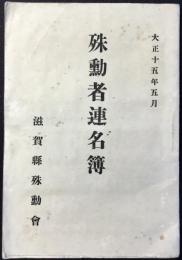 大正十五年五月
殊勳者連名簿
滋賀縣殊勳會